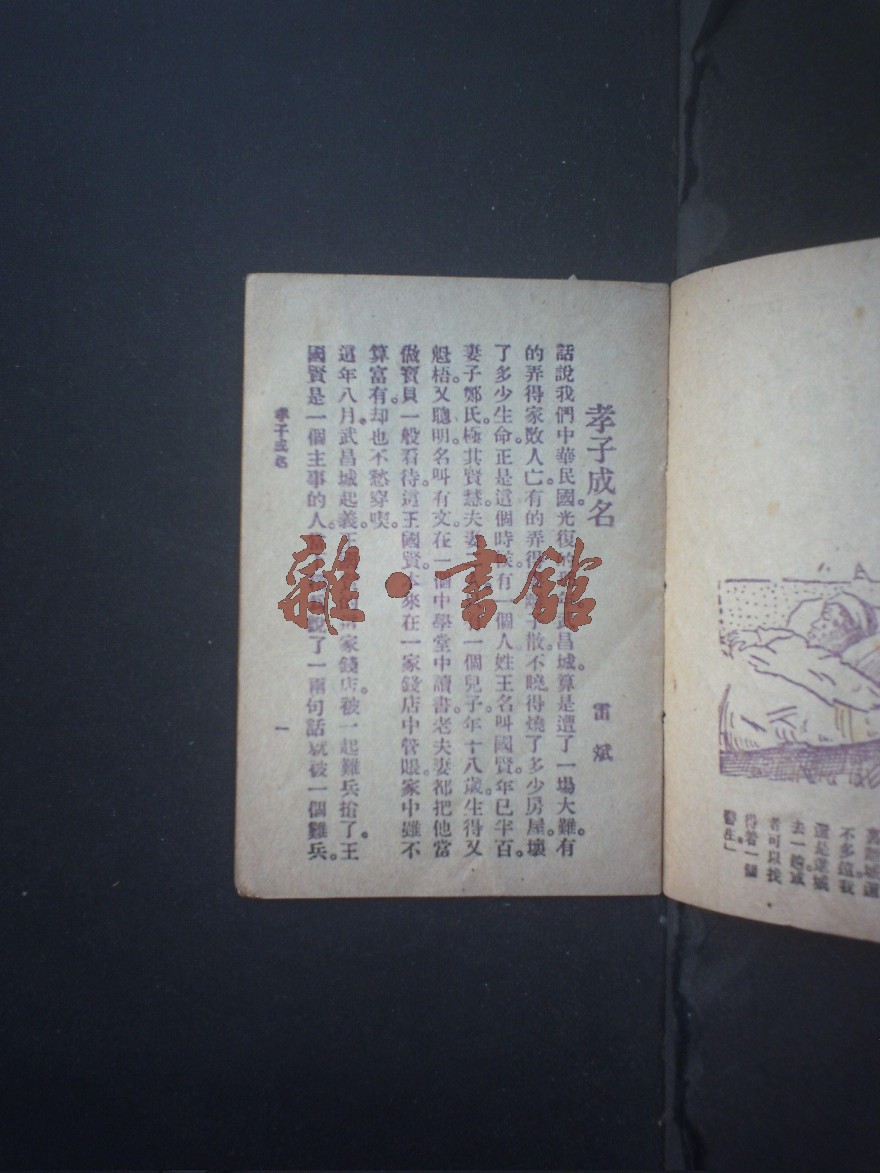 不多遠我
還是進城
去一趟或
者可以找
得着一個
醫生」
孝子成名
雷斌
話說我們中華民國光復的武昌城。算是遭了一場大難。有
的弄得家敗人亡有的弄得子散。不曉得燒了多少房屋。壞
了多少生命正是這個時候。有一個人姓王名叫國賢。年已半百。
妻子鄭氏。極其賢慧。夫妻一個兒子。年十八歲。生得又
魁梧。又聰明。名叫有文。在一個中學堂中讀書。老夫妻都把他當
做寶貝一般看待。這王國賢本來在一家錢店中管賬。家中雖不
算富有。却也不愁穿喫。
這年八月。武昌城起義。家錢店。被一起難兵搶了。王
國賢是一個主事的人。說了一兩句話。就被一個難兵。
孝子成名
一
雜·書館